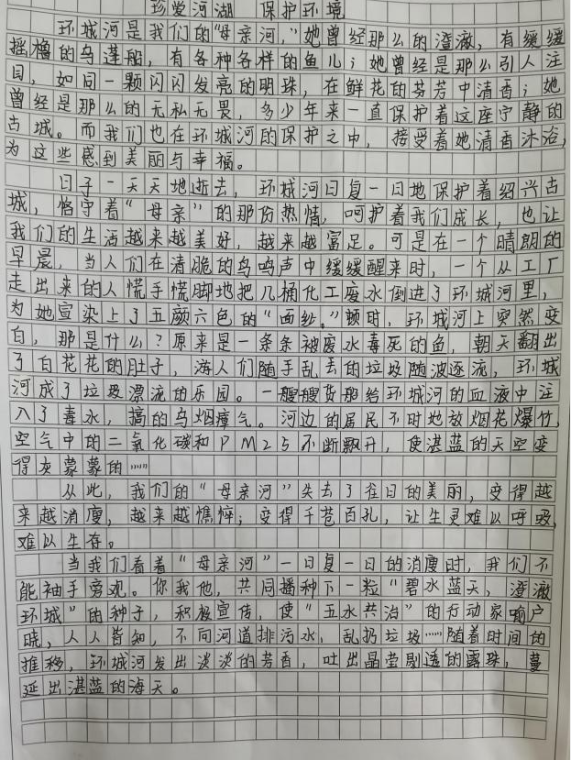 珍爱河湖 保护环境
环城河是我们的“母亲河,”她曾经那么的澄澈,有缓缓
摇橹的乌蓬船,有各种各样的鱼儿;她曾经是那么引人注
目,如同一颗闪闪发亮的明珠,在鲜花的芬芳中清香;她
曾经是那么的无私无畏,多少年来一直保护着这座宁静的
古城。而我们也在环城河的保护之中,接受着她清香沐浴,
为这些感到美丽与幸福。
日子一天天地逝去,环城河日复一日地保护着绍兴古
城,恪守着“母亲”的那份热情,呵护着我们成长,也让
我们的生活越来越美好,越来越富足。可是在一个晴朗的
早晨,当人们在清脆的鸟鸣声中缓缓醒来时,一个从工厂
走出来的人慌手慌脚地把几桶化工废水倒进了环城河里,
为她宣染上了五颜六色的“面纱。”顿时,环城河上突然变
白,那是什么?原来是一条条被废水毒死的鱼,朝天翻出
了白花花的肚子,海人们随手乱丢的垃圾随波逐流,环城
河成了垃圾漂流的乐园。一艘艘货船给环城河的血液中注
入了毒水,搞的乌烟瘴气。河边的居民不时地放烟花爆竹,
空气中的二氧化碳和PM25不断飘升,使湛蓝的天空变
得灰蒙蒙的……
从此,我们的“母亲河”失去了往日的美丽,变得越
来越消瘦,越来越憔悴;变得千苍百孔,让生灵难以呼吸,
难以生存。
当我们看着“母亲河”一日复一日的消瘦时,我们不
能袖手旁观。你我他,共同播种下一粒“碧水蓝天,澄澈
环城”的种子,积极宣传,使“五水共治”的行动家喻户
晓,人人皆知,不向河道排污水,乱扔垃圾……随着时间的
推移,环城河发出淡淡的芳香,吐出晶莹剔透的露珠,蔓
延出湛蓝的海天。